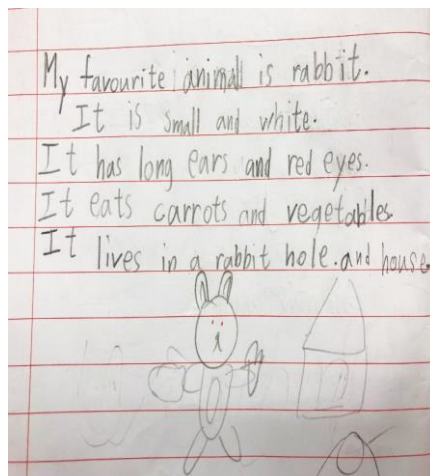 My favourite animall is rabbit.
It is small and white.
It has long ears and red eyes.
It eats carrots and vegetables.
It lives in a rabbit hole.and house